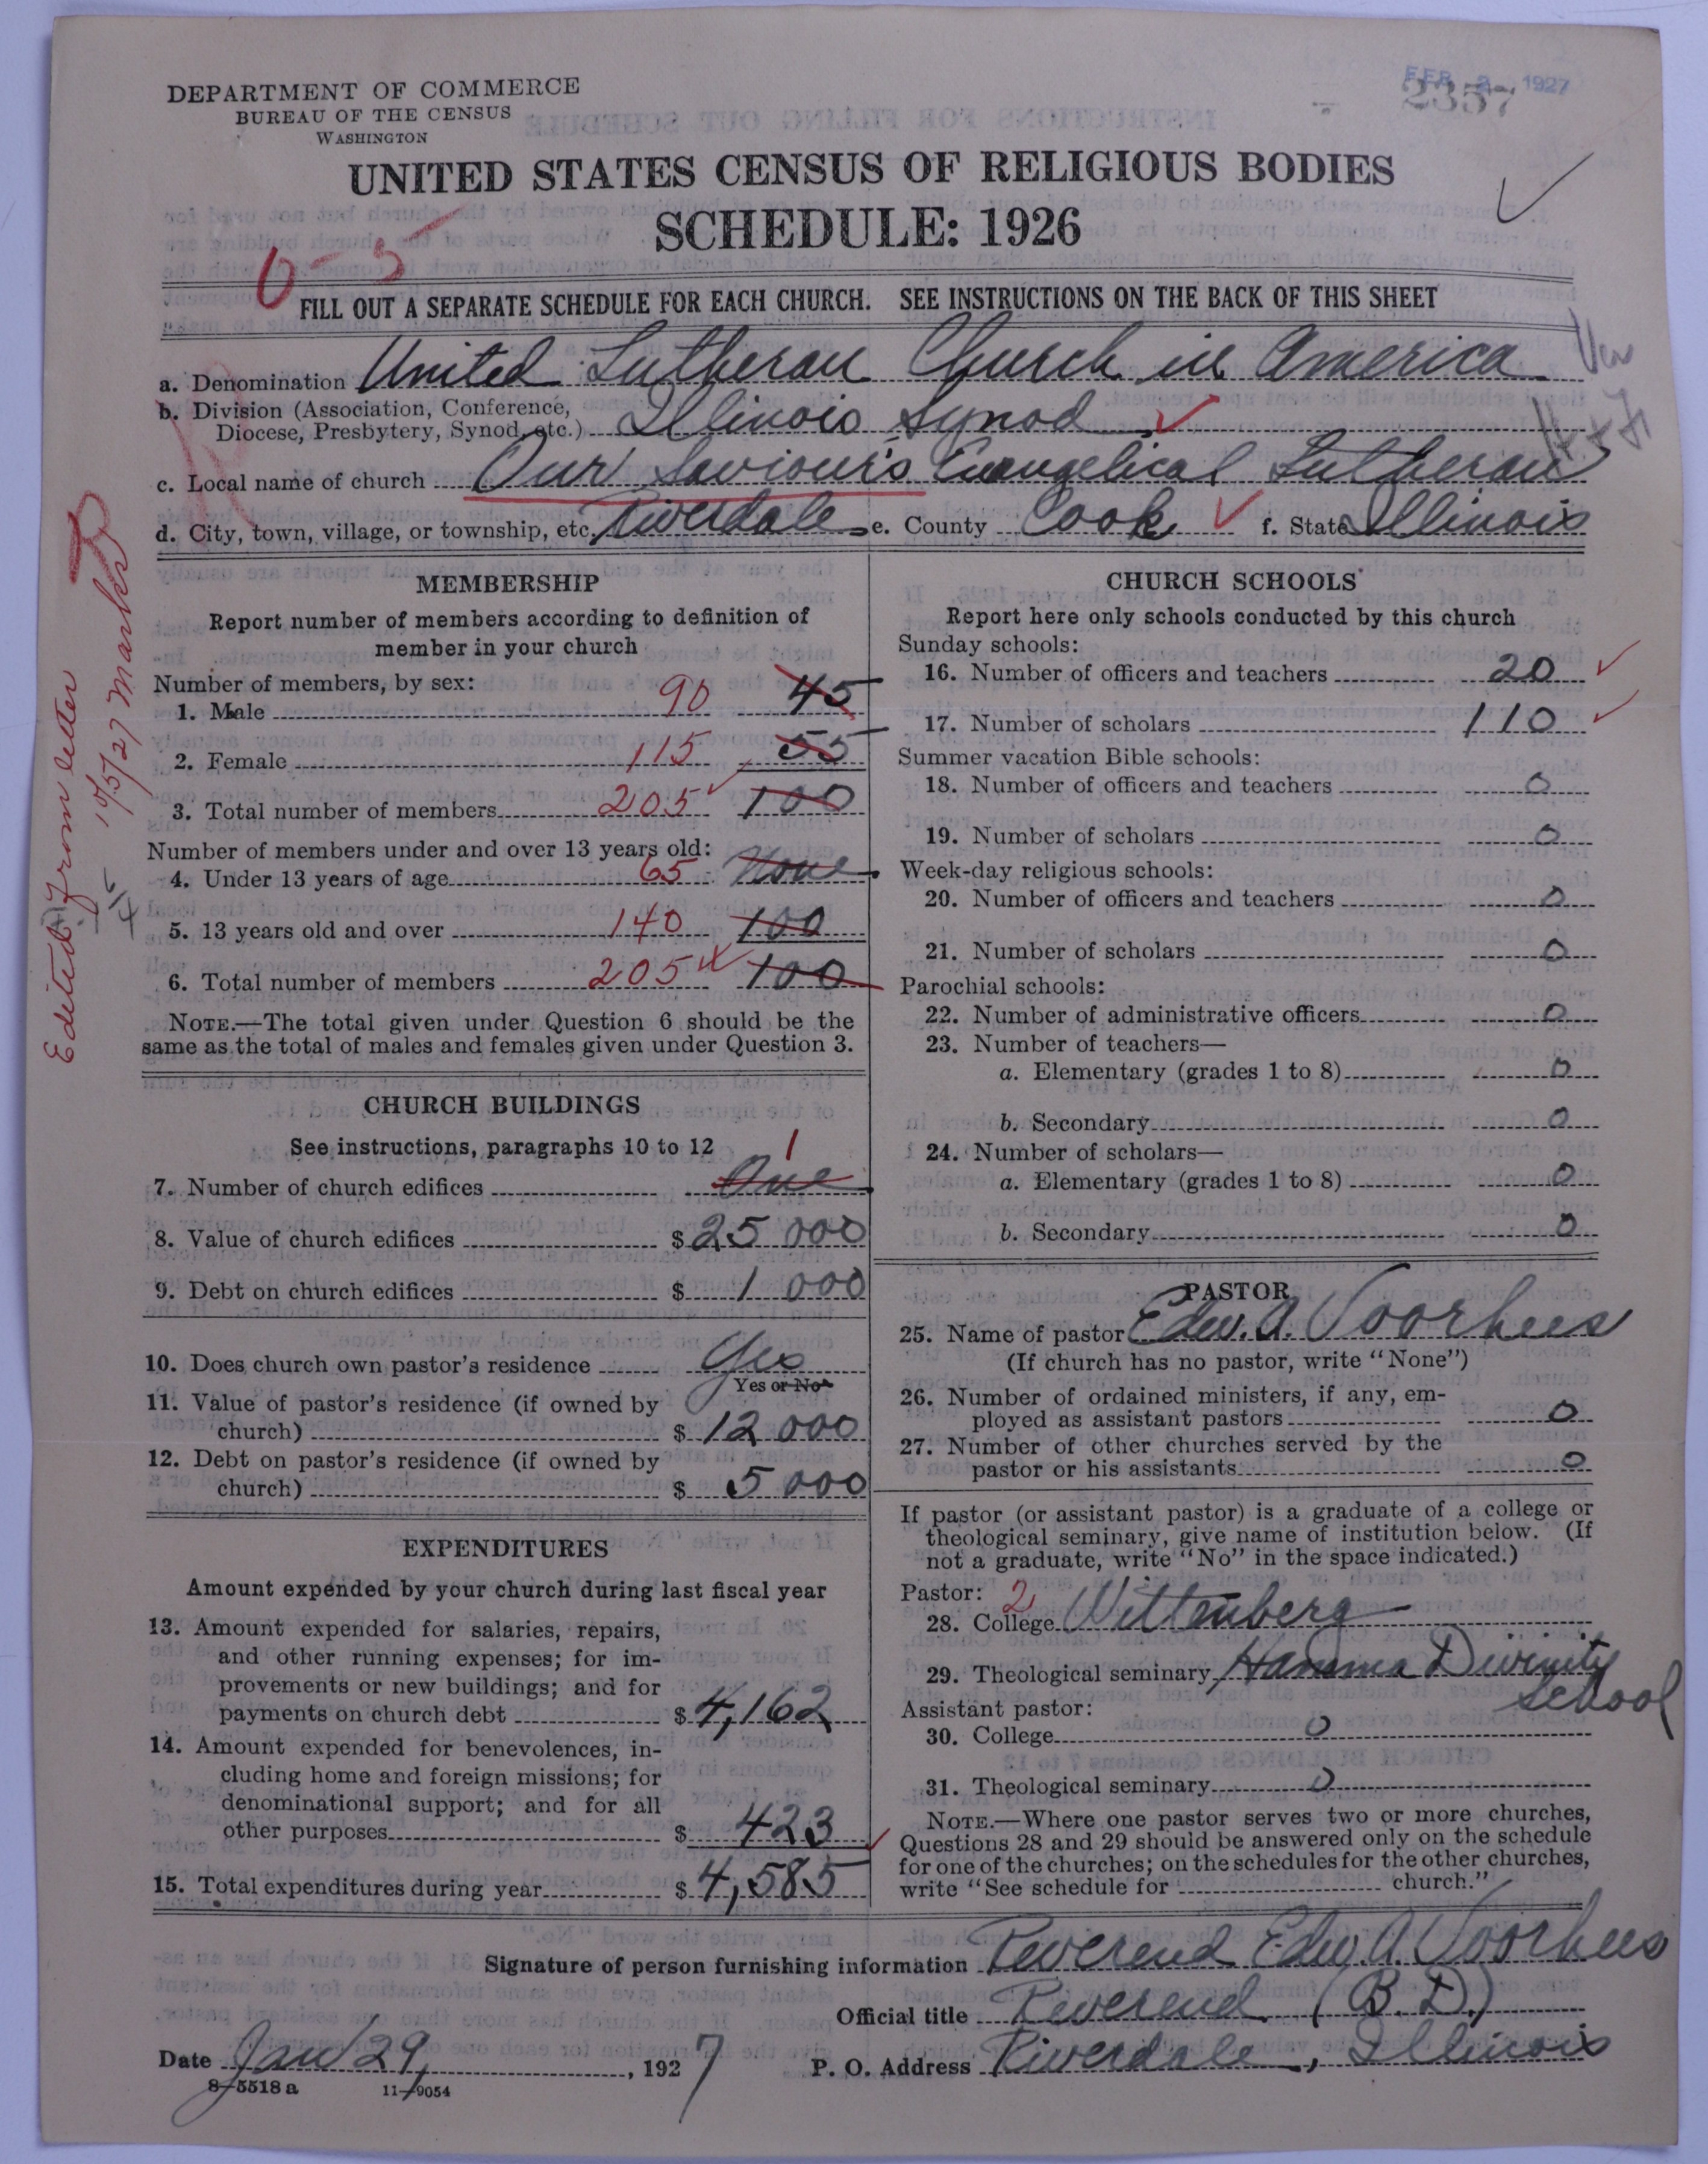 DEPARTMENT OF COMMERCE
BUREAU OF THE CENSUS
WASHINGTON
FEB 2 1927
2357
UNITED STATES CENSUS OF RELIGIOUS BODIES
SCHEDULE: 1926
0-5
FILL OUT A SEPARATE SCHEDULE FOR EACH CHURCH. SEE INSTRUCTIONS ON THE BACK OF THIS SHEET
a. Denomination United Lutheran Church in America
b. Division (Association, Conference,
Diocese, Presbytery, Synod, etc.) Illinois Synod
c. Local name of church Our Saviour's Evangelical Lutheran
d. City, town, village, or township, etc. Riverdale e. County Cook f. State Illinois
Edited from letter
4/5
MEMBERSHIP
Report number of members according to definition of
member in your church
Number of members, by sex:
1. Male 90 45
2. Female 115 55
3. Total number of members 205 100
Number of members under and over 13 years old:
4. Under 13 years of age 65 None
5. 13 years old and over 140 100
6. Total number of members 205 100
NOTE.—The total given under Question 6 should be the
same as the total of males and females given under Question 3.
CHURCH BUILDINGS
See instructions, paragraphs 10 to 12
1
7. Number of church edifices One
8. Value of church edifices $ 25 000
9. Debt on church edifices $ 1 000
10. Does church own pastor's residence Yes
Yes or No
11. Value of pastor's residence (if owned by
church) $ 12 000
12. Debt on pastor's residence (if owned by
church) $ 5 000
EXPENDITURES
Amount expended by your church during last fiscal year
13. Amount expended for salaries, repairs,
and other running expenses; for im-
provements or new buildings; and for
payments on church debt $ 4,162
14. Amount expended for benevolences, in-
cluding home and foreign missions; for
denominational support; and for all
other purposes $ 423
15. Total expenditures during year $ 4,585
CHURCH SCHOOLS
Report here only schools conducted by this church
Sunday schools:
16. Number of officers and teachers 20
17. Number of scholars 110
Summer vacation Bible schools:
18. Number of officers and teachers 0
19. Number of scholars 0
Week-day religious schools:
20. Number of officers and teachers 0
21. Number of scholars 0
Parochial schools:
22. Number of administrative officers 0
23. Number of teachers—
a. Elementary (grades 1 to 8) 0
b. Secondary 0
24. Number of scholars—
a. Elementary (grades 1 to 8) 0
b. Secondary 0
PASTOR
25. Name of pastor Edw. A. Voorhees
(If church has no pastor, write "None")
26. Number of ordained ministers, if any, em-
ployed as assistant pastors 0
27. Number of other churches served by the
pastor or his assistants 0
If pastor (or assistant pastor) is a graduate of a college or
theological seminary, give name of institution below. (If
not a graduate, write "No" in the space indicated.)
Pastor: 2
28. College Wittenberg
29. Theological seminary Hamma Divinity
School
Assistant pastor:
30. College 0
31. Theological seminary 0
NOTE.—Where one pastor serves two or more churches,
Questions 28 and 29 should be answered only on the schedule
for one of the churches; on the schedules for the other churches,
write "See schedule for church."
Signature of person furnishing information Reverend Edw. A. Voorhees
Official title Reverend (B. D.)
Date Jan 29, 1927 P. O. Address Riverdale, Illinois
8-5518 a 11-9054